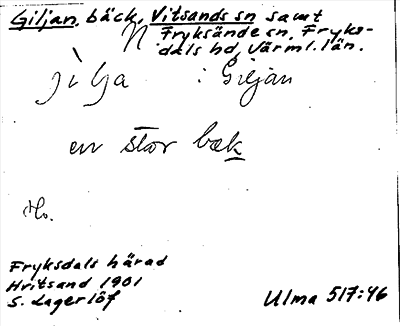 Giljan, bäck, Vitsands sn samt
N Fryksände sn. Fryks-
dals hd, Värml. län.
i Giljan
en stor bæk
Ho.
Fryksdals härad
Hritsand 1901
S. Lagerlöf
Ulma 517:46